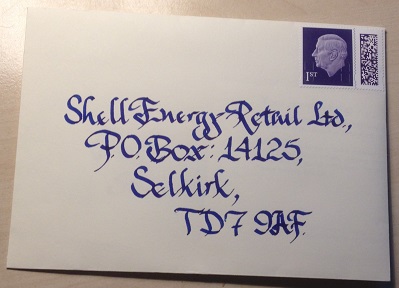 1ST
Shell Energy Retail Ltd.,
P.O. Box: 14125,
Selkirk,
TD7 9AF.